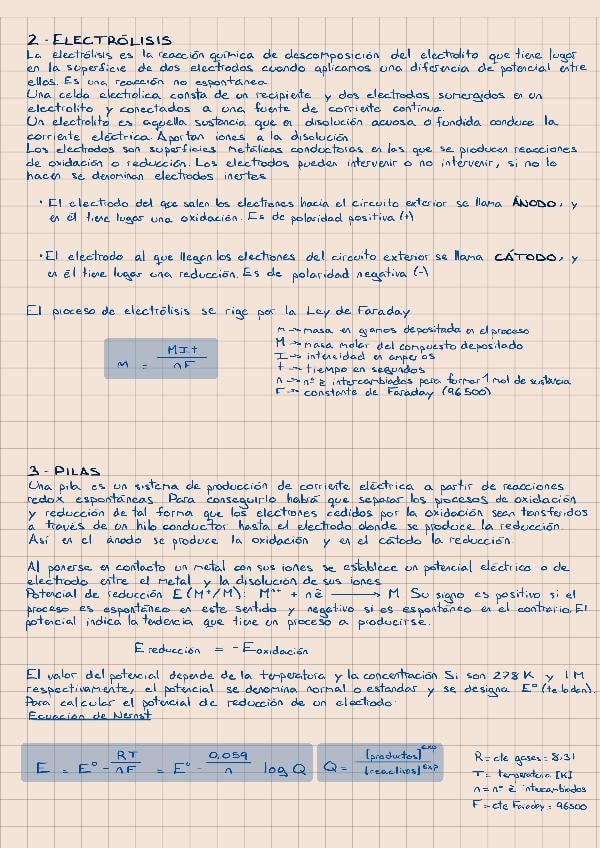 2 - ELECTRÓLISIS
La electrólisis es la reacción química de descomposición del electrolito que tiene lugar
en la superficie de dos electrodos cuando aplicamos una diferencia de potencial entre
ellos. Es una reacción no espontánea.
Una celda electrolica consta de un recipiente y dos electrodos sumergidos en un
electrolito y conectados a una fuente de corriente continua.
Un electrolito es aquella sustancia que en disolución acuosa o fundida conduce la
corriente eléctrica. Aportan iones a la disolución
Los electrodos son superficies metálicas conductoras en las que se producen reacciones
de oxidación o reducción. Los electrodos pueden intervenir o no intervenir, si no lo
hacen se denominan electrodos inertes
· El electrodo del que salen los electrones hacia el circuito exterior se llama ÁNODO, y
en él tiene lugar una oxidación. Es de polaridad positiva (+)
· El electrodo al que llegan los electrones del circuito exterior se llama CÁTODO, y
en él tiene lugar una reducción. Es de polaridad negativa (-)
El proceso de electrólisis se rige por la Ley de Faraday
m = MIt / nF
m → masa en gramos depositada en el proceso
M → masa molar del compuesto depositado
I → intensidad en amperios
t → tiempo en segundos
n → nº ē intercambiados para formar 1 mol de sustancia
F → constante de Faraday (96500)
3 - PILAS
Una pila es un sistema de producción de corriente eléctrica a partir de reacciones
redox espontáneas. Para conseguirlo habrá que separar los procesos de oxidación
y reducción de tal forma que los electrones cedidos por la oxidación sean transferidos
a través de un hilo conductor hasta el electrodo donde se produce la reducción.
Así en el ánodo se produce la oxidación y en el cátodo la reducción.
Al ponerse en contacto un metal con sus iones se establece un potencial eléctrico o de
electrodo entre el metal y la disolución de sus iones
Potencial de reducción E (M⁺/M): Mⁿ⁺ + nē → M Su signo es positivo si el
proceso es espontáneo en este sentido y negativo si es espontáneo en el contrario. El
potencial indica la tendencia que tiene un proceso a producirse.
E reducción = - E oxidación
El valor del potencial depende de la temperatura y la concentración Si son 278 K y 1 M
respectivamente, el potencial se denomina normal o estandar y se designa E° (te lo den).
Para calcular el potencial de reducción de un electrodo:
Ecuación de Nernst
E = E° - RT / nF = E° - 0,059 / n log Q
Q = [productos]^exp / [reactivos]^exp
R = cte gases = 8,31
T = temperatura [K]
n = nº ē intercambiados
F = cte Faraday = 96500